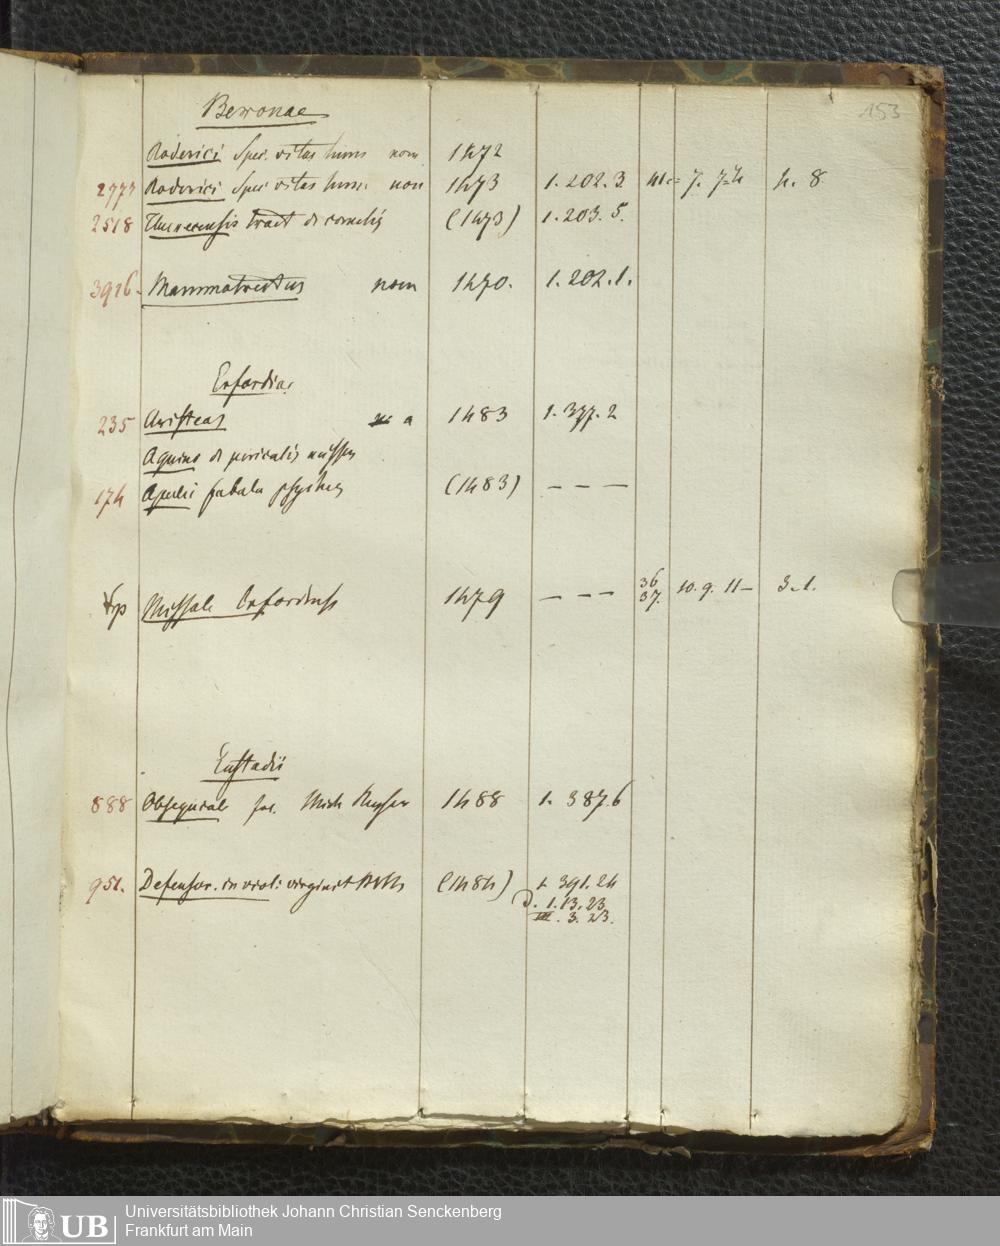 153
Beronae
Roderici Spec. vitae hum nom 1472
2777 Roderici Spec vitae hum. non 1473 1. 202. 3 41 7. 7 4. 8
2518 Thurecensis tract de cometis (1473) 1. 203. 5.
3916. Mammotrectus nom 1470. 1. 202. 1.
Erfordiae
235 Aristeas a 1483 1. 377. 2
Aquino de periculis missae
174 Apulei fabula psyches (1483) — — —
Missale Erfordense 1479 — — — 36 37. 10. 9. 11 — 3. 1.
Eustadii
888 Obsequiale per Mich Reyser 1488 1. 387. 6
951. Defensor. inviol: virginit Mar (1484) 1. 391. 24
D. 1. 13. 23
III. 3. 23.
UB
Universitätsbibliothek Johann Christian Senckenberg
Frankfurt am Main